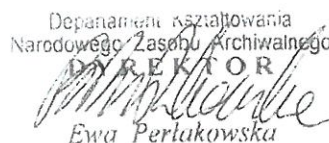 Departament Kształtowania
Narodowego Zasobu Archiwalnego
DYREKTOR
Ewa Perłakowska